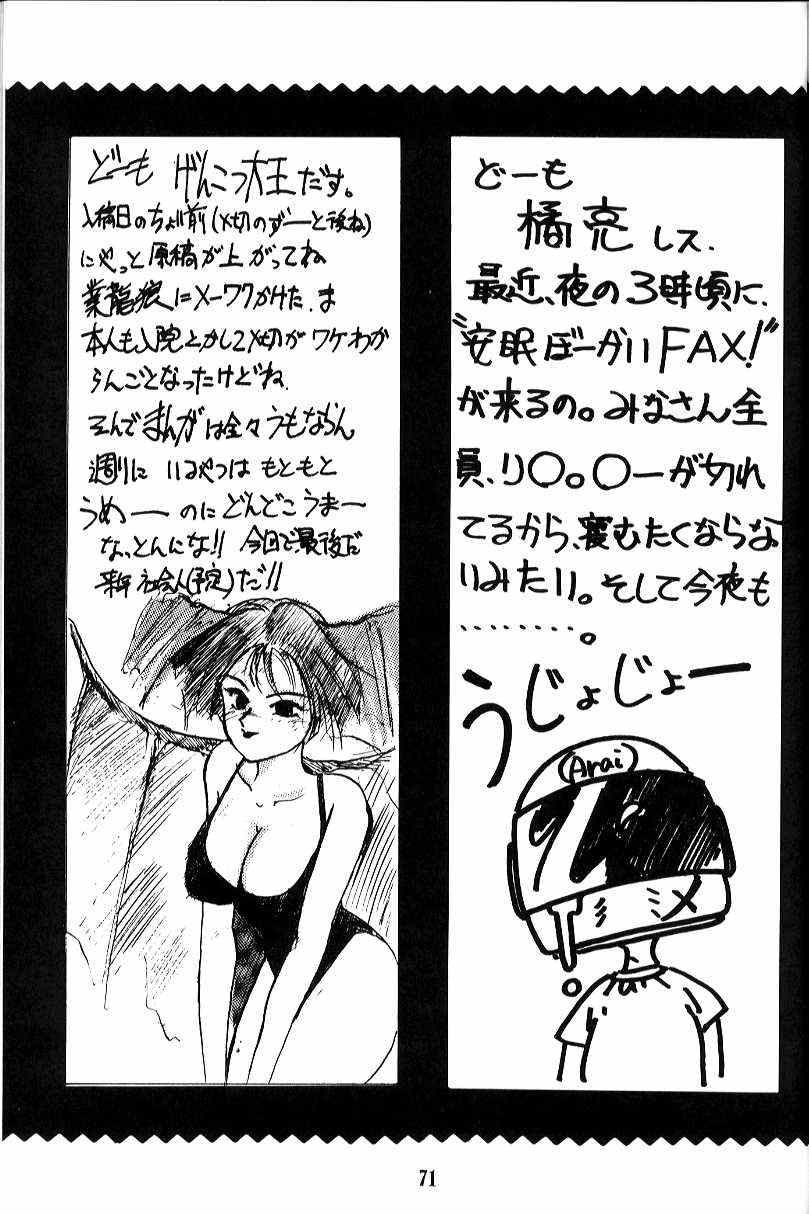 どーも げんこつ大王だす。
入稿日のちょい前(〆切のずーっと後ね)
にやっと原稿が上がってね
業龍狼にメーワクかけた、ま
本人も入院とかして〆切がワケわか
らんごとなったけどね、
そんでまんがは全々うもならん
週りにいるやつはもともと
うめーのにどんどこうまー
なっとんにな!! 今日で最後だ
来年社会人(予定)だ!!
どーも
橘亮しス、
最近、夜の3時頃に、
"安眠ぼーがいFAX!"
が来るの。みなさん全
員、リ〇。〇ーが切れ
てるから、寝むたくならな
いみたい。そして今夜も
………。
うじょじょー
(Arai)
71